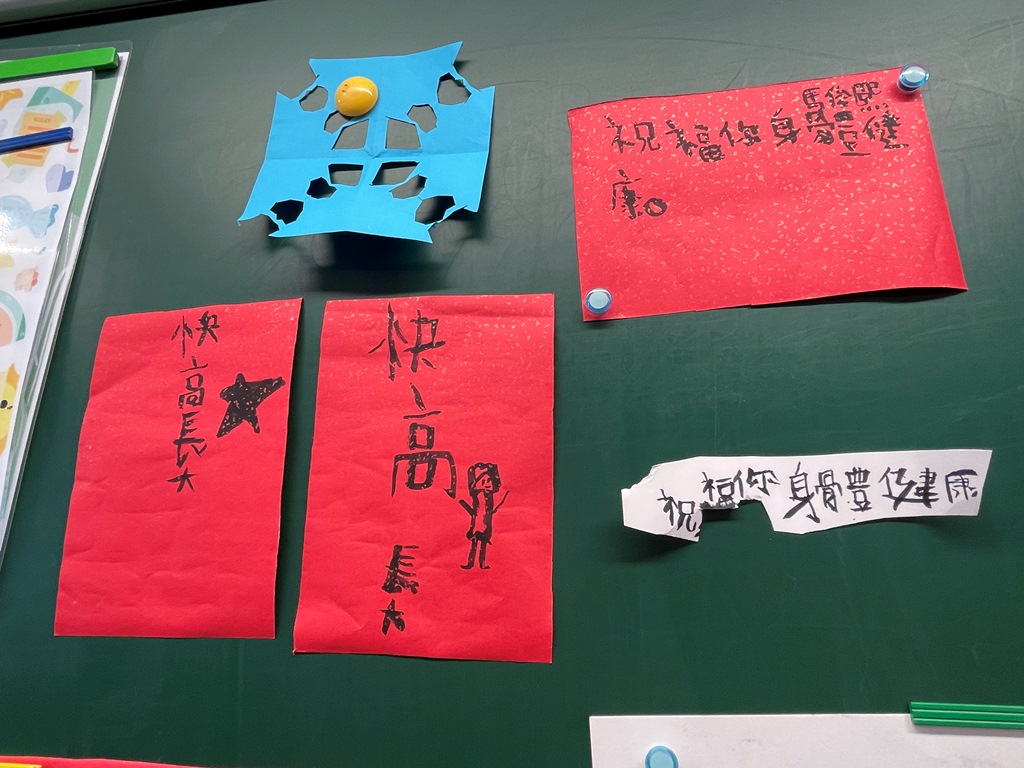 祝福你身體健
康。
快高長大
快高長大
祝福你身體健康